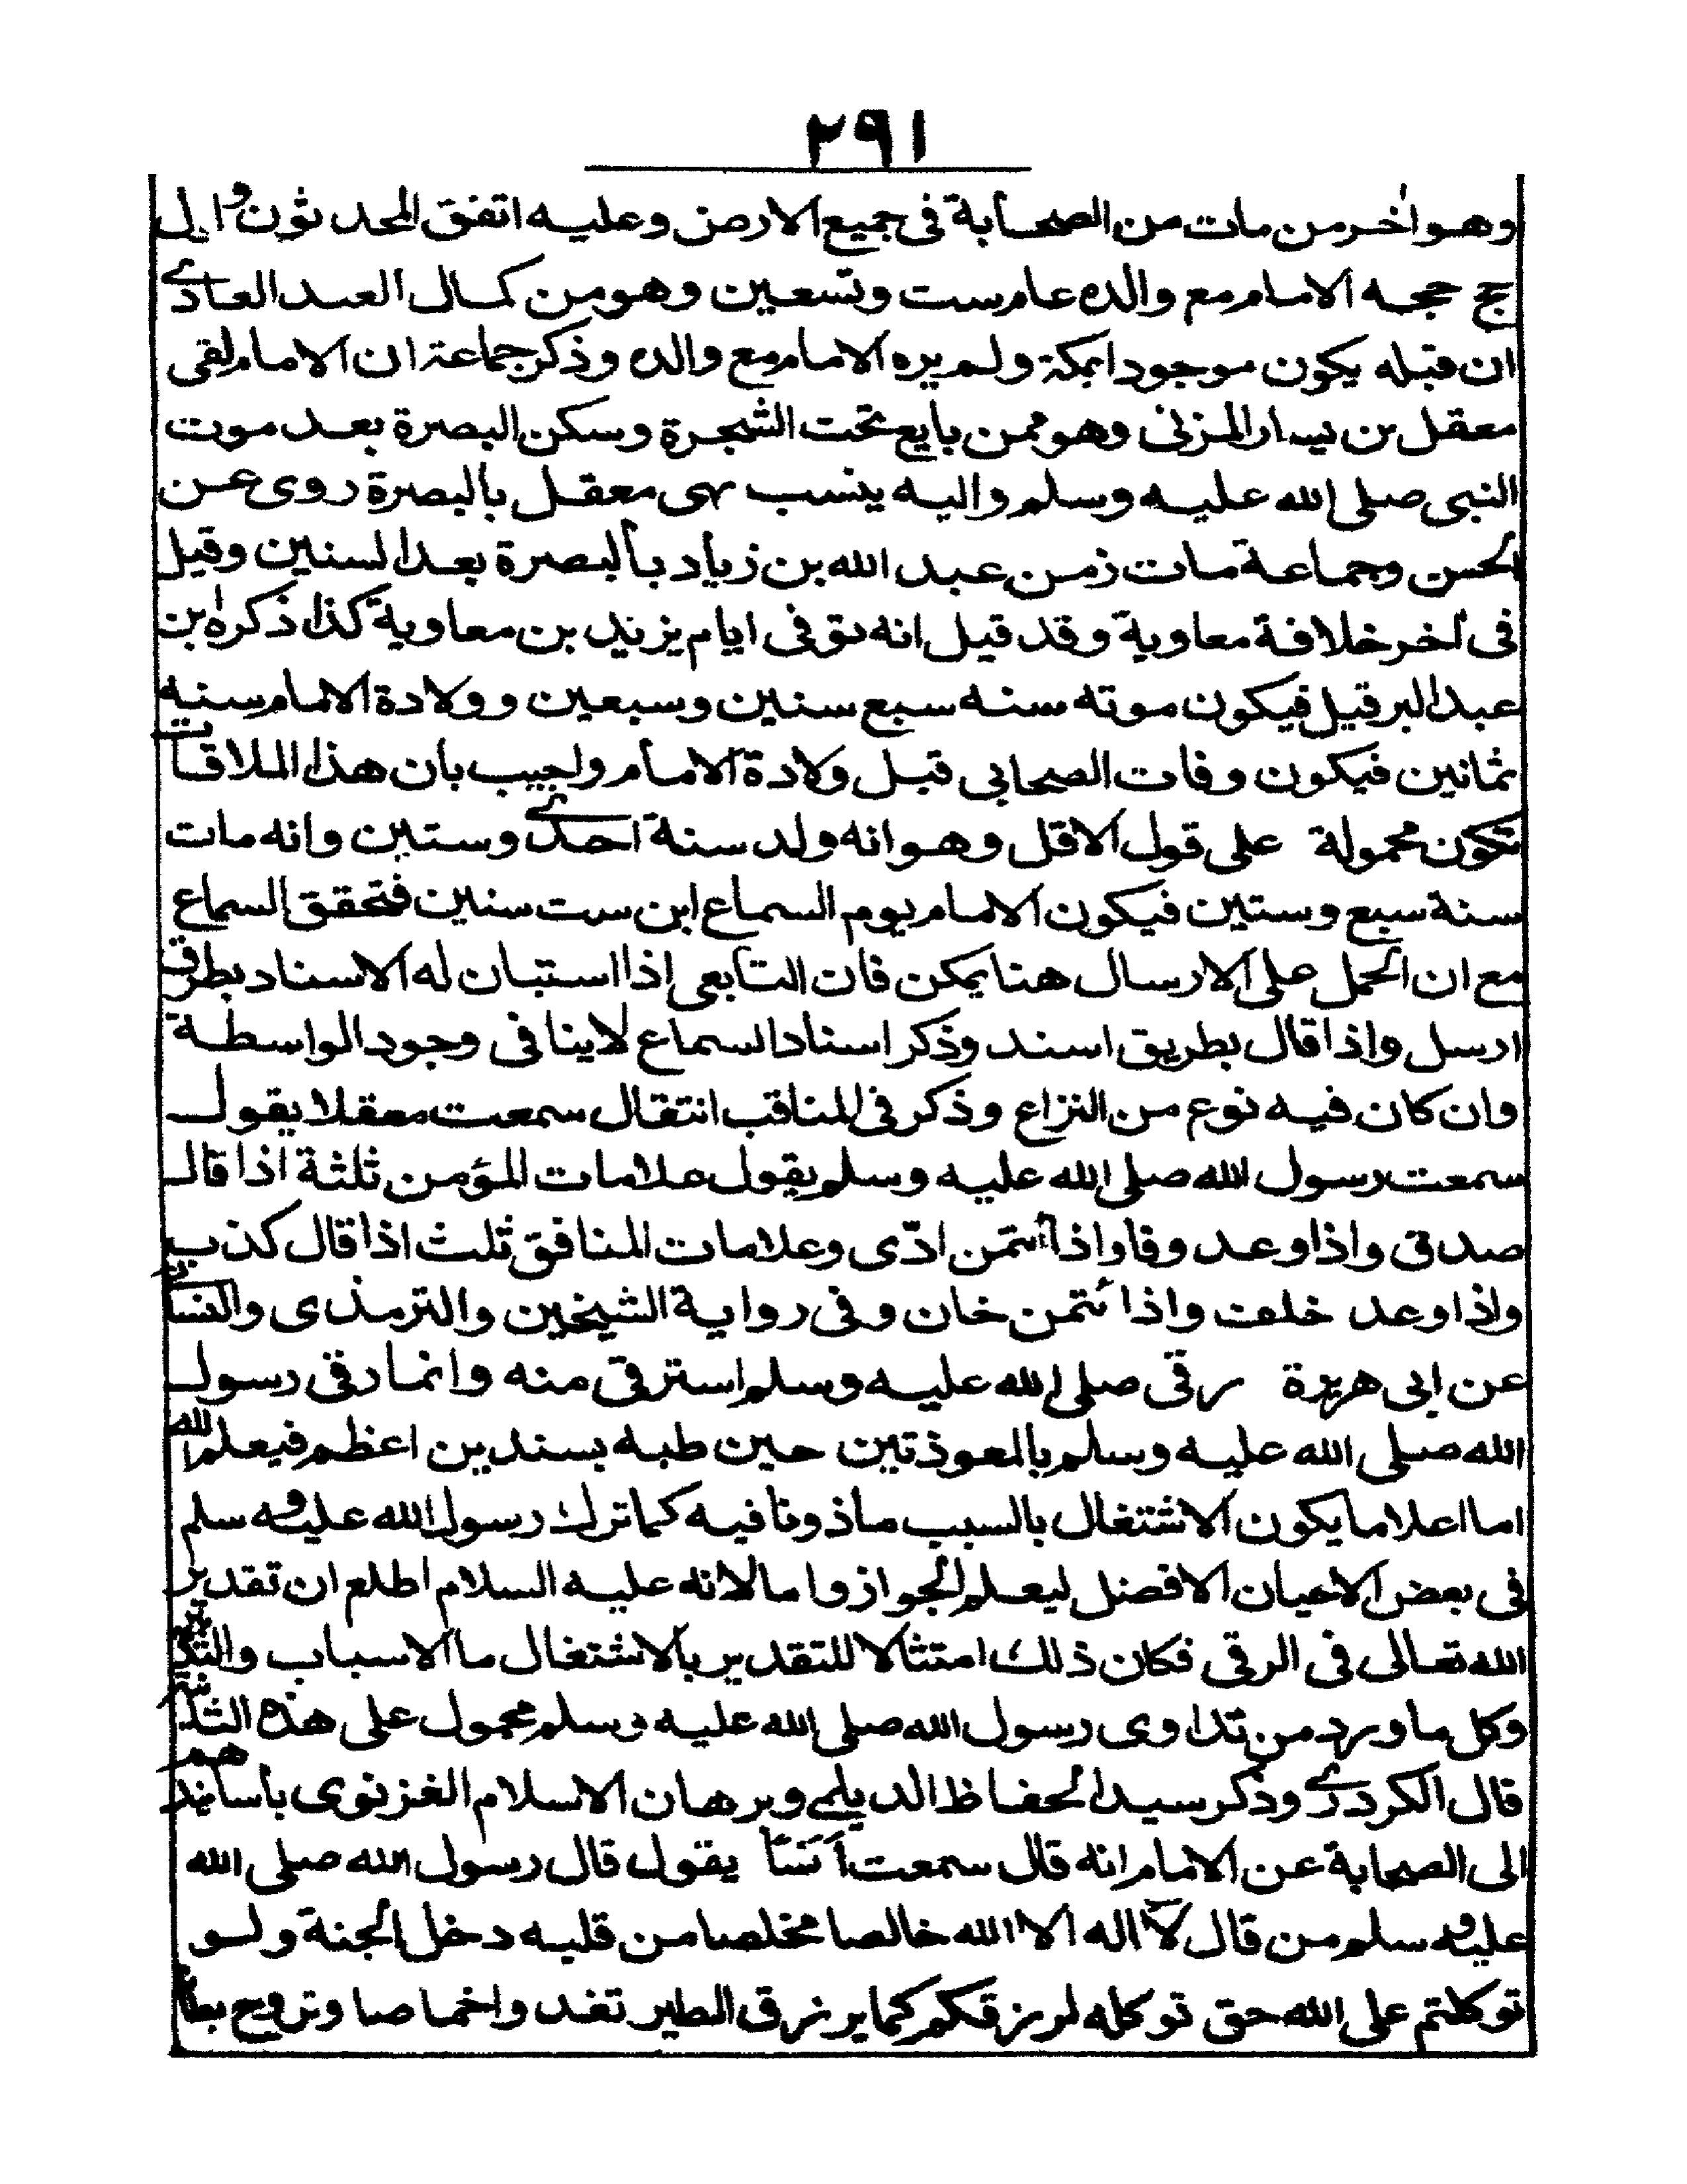 ٢٩١
وهو اٰخر من مات من الصحابة فى جميع الارض وعليه اتفق المحدثون و اول
حج حجه الامام مع والده عام ست وتسعين وهو من كمال العبد العادى
ان قبله يكون موجودا بمكة ولم يره الامام مع والده وذكر جماعة ان الامام لقى
معقل بن يسار المزنى وهو ممن بايع تحت الشجرة وسكن البصرة بعد موت
النبى صلى الله عليه وسلم واليه ينسب نهى معقل بالبصرة روى عن
الحسن وجماعة مات زمن عبد الله بن زياد بالبصرة بعد السنين وقيل
فى اٰخر خلافة معاوية وقد قيل انه توفى ايام يزيد بن معاوية كذا ذكره ابن
عبد البر قيل فيكون موته سنه سبع سنين وسبعين وولادة الامام سنه
ثمانين فيكون وفات الصحابى قبل ولادة الامام واجيب بان هذا الملاقات
تكون محمولة على قول الاقل وهو انه ولد سنة احدى وستين وانه مات
سنة سبع وستين فيكون الامام يوم السماع ابن ست سنين فتحقق السماع
مع ان الحمل على الارسال هنا يمكن فان التابعى اذا استبان له الاسناد بطرق
ارسل واذا قال بطريق اسند وذكر اسناد السماع لاينافى وجود الواسطة
وان كان فيه نوع من النزاع وذكر فى المناقب انتقال سمعت معقلا يقول
سمعت رسول الله صلى الله عليه وسلم يقول علامات المؤمن ثلثة اذا قال
صدق واذا وعد وفا واذا أتمن ادّى وعلامات المنافق ثلث اذا قال كذب
واذا وعد خلف واذا ئتمن خان وفى رواية الشيخين والترمذى والنسائى
عن ابى هريرة رقى صلى الله عليه وسلم استرقى منه وانما رقى رسول
الله صلى الله عليه وسلم بالمعوذتين حين طبه بسندين اعظم فيعلم الله
اما اعلاما يكون الاشتغال بالسبب ماذونا فيه كما ترك رسول الله عليه و سلم
فى بعض الاحيان الافضل ليعلم الجواز واما لانه عليه السلام اطلع ان تقدير
الله تعالى فى الرقى فكان ذلك امتثالا للتقدير بالاشتغال ما الاسباب
وكل ما ورد من تداوى رسول الله صلى الله عليه وسلم محمول على هذه
قال الكردرى وذكر سيد الحفاظ الديلمى وبرهان الاسلام الغزنوى باسانيدهم
الى الصحابة عن الامام انه قال سمعت اَنَسًا يقول قال رسول الله صلى الله
عليه و سلم من قال لآ اله الا الله خالصا مخلصا من قلبه دخل الجنة ولو
توكلتم على الله حق توكله لرزقكم كما يرزق الطير تغدو اخماصا وتروح بطانا